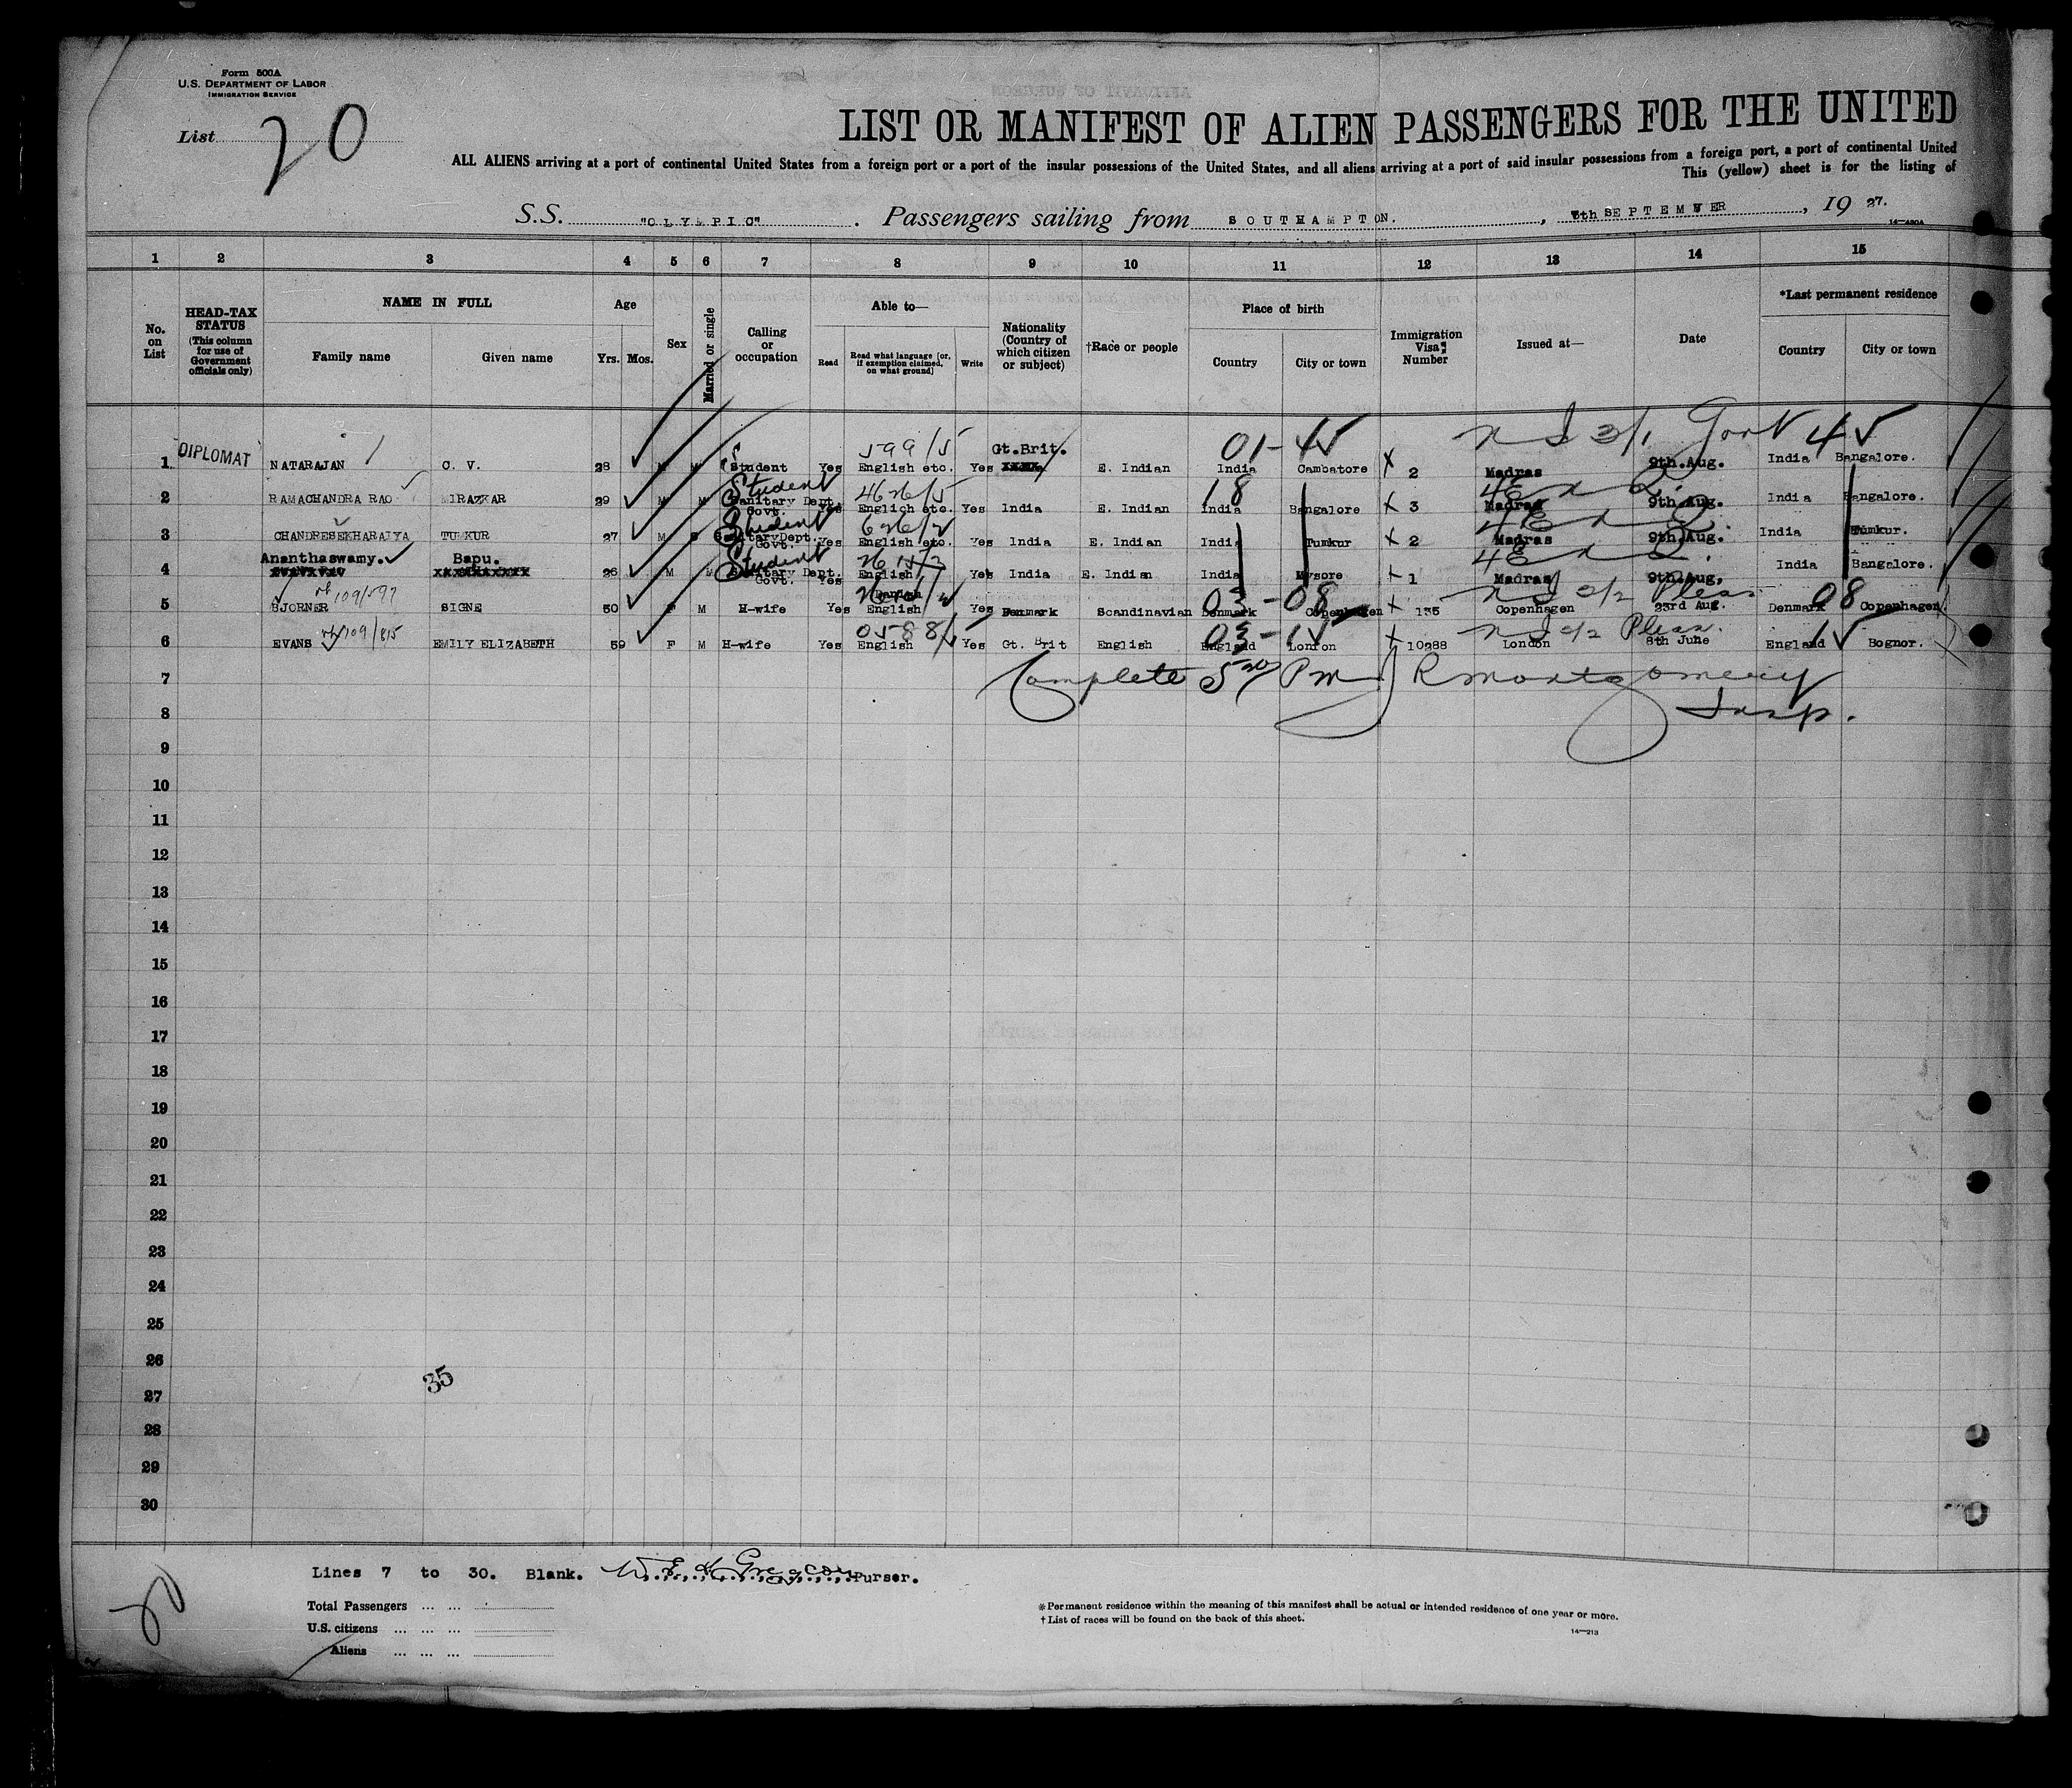 Form 500A
U.S. DEPARTMENT OF LABOR
IMMIGRATION SERVICE
List 20
LIST OR MANIFEST OF ALIEN PASSENGERS FOR THE UNITED
ALL ALIENS arriving at a port of continental United States from a foreign port or a port of the insular possessions of the United States, and all aliens arriving at a port of said insular possessions from a foreign port, a port of continental United
This (yellow) sheet is for the listing of
S.S. "OLYMPIC". Passengers sailing from SOUTHAMPTON., 7th SEPTEMBER, 1927.
14—480A
1 2 3 4 5 6 7 8 9 10 11 12 13 14 15
No. on List
HEAD-TAX STATUS (This column for use of Government officials only)
NAME IN FULL
Family name Given name
Age
Yrs. Mos.
Sex
Married or single
Calling or occupation
Able to—
Read Read what language [or, if exemption claimed, on what ground] Write
Nationality (Country of which citizen or subject)
†Race or people
Place of birth
Country City or town
Immigration Visa Number
Issued at—
Date
*Last permanent residence
Country City or town
599/5 Gt.Brit. 01-45 Govt 45
1 DIPLOMAT NATARAJAN C. V. 28 M M Student Yes English etc. Yes E. Indian India Cambatore X 2 Madras 9th.Aug. India Bangalore.
Student 18
2 RAMACHANDRA RAO MIRAZKAR 29 M M Sanitary Dept. Govt. Yes English etc. Yes India E. Indian India Bangalore X 3 Madras 9th.Aug. India Bangalore.
Student
3 CHANDRESEKHARAIYA TUMKUR 27 M S Sanitary Dept. Govt. Yes English etc. Yes India E. Indian India Tumkur X 2 Madras 9th.Aug. India Tumkur.
Ananthaswamy. Bapu. Student
4 26 M M Sanitary Dept. Govt. Yes English Yes India E. Indian India Mysore X 1 Madras 9th.Aug, India Bangalore.
109/597 Danish 03-08 Pleas 08
5 BJORNER SIGNE 50 F M H-wife Yes English Yes Denmark Scandinavian Denmark Copenhagen X 135 Copenhagen 23rd Aug. Denmark Copenhagen
109/815 0588/ 03-15 Pleas. 15
6 EVANS EMILY ELIZABETH 59 F M H-wife Yes English Yes Gt. Brit English England London X 10288 London 8th June England Bognor.
7 Complete 5 PM J R Montgomery
8 Insp.
9
10
11
12
13
14
15
16
17
18
19
20
21
22
23
24
25
26
35
27
28
29
30
Lines 7 to 30. Blank. W. E. H. Gregory Purser.
20
Total Passengers
U.S. citizens
Aliens
*Permanent residence within the meaning of this manifest shall be actual or intended residence of one year or more.
†List of races will be found on the back of this sheet.
14—213